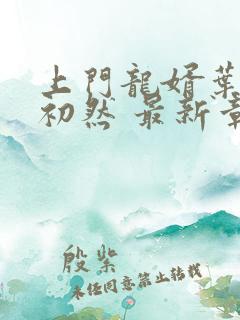 上門龍婿葉
初然 最新章
殷紫
未经同意禁止转载